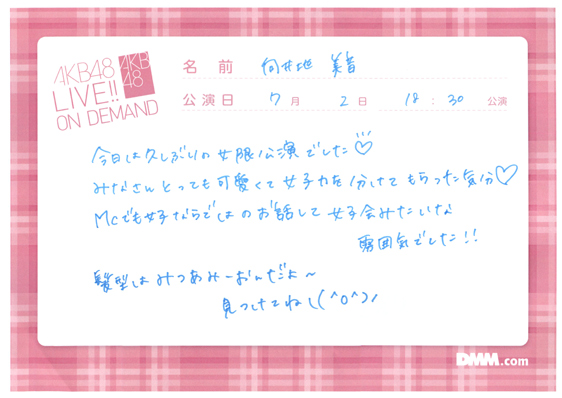 AKB48
LIVE!!
ON DEMAND
AKB
48
名前 向井地 美音
公演日 7月 2日 18:30 公演
今日は久しぶりの女服公演でした♡
みなさんとっても可愛くて女子力を分けてもらった気分♡
MCでも女子ならではのお話して女子会みたいな
雰囲気でした!!
髪型はみつあみーおんだよ~
見つけてね\(^o^)/
DMM.com